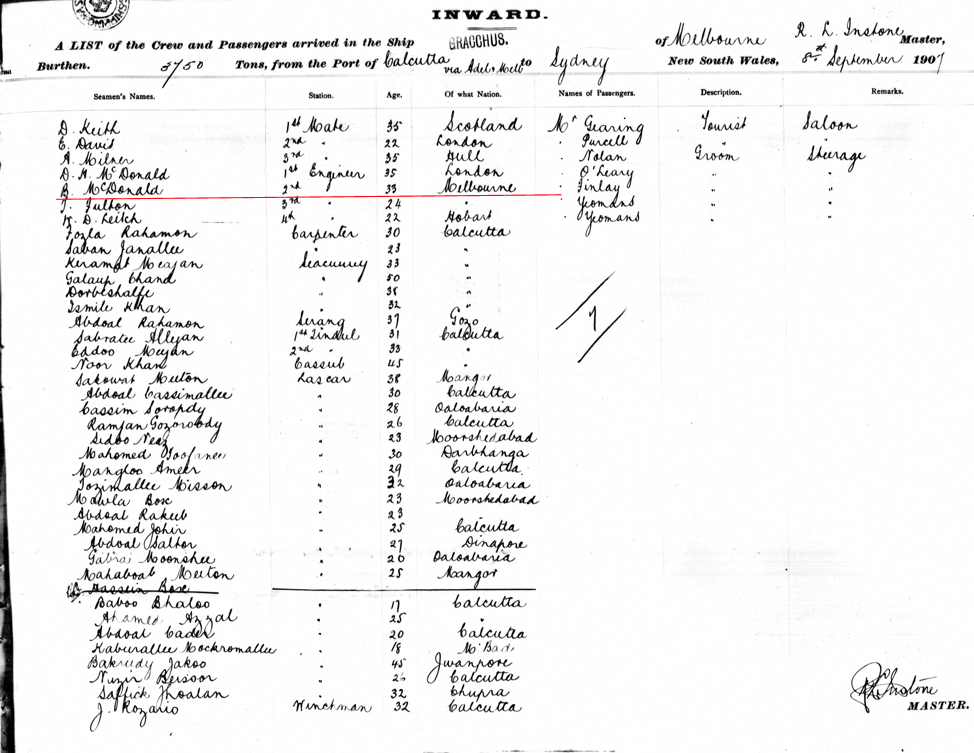 INWARD.
A LIST of the Crew and Passengers arrived in the Ship GRACCHUS. of Melbourne R. L. Instone Master,
Burthen. 3750 Tons, from the Port of Calcutta via Adel & Melb to Sydney New South Wales, 8th September 1907
Seamen's Names. Station. Age. Of what Nation. Names of Passengers. Description. Remarks.
D. Keith 1st Mate 35 Scotland Mr Gearing Tourist Saloon
E. Davis 2nd " 22 London " Purcell
A. Milner 3rd " 35 Hull " Nolan Groom Steerage
D. A. McDonald 1st Engineer 35 London " O'Leary " "
B. McDonald 2nd " 33 Melbourne " Finlay " "
3rd " 24 " " Yeomans " "
D. Leitch 4th " 22 Hobart " Yeomans " "
Fozla Rahamon Carpenter 30 Calcutta
Saban Janallee 23 "
Keramat Meajan Seacunny 33 "
Galaup Chand " 50 "
Dorbeshalfe " 38 "
Ismile Khan " 32 "
Abdoal Rahamon Serang 37 Gozo
Sabratee Alleyan 1st Tindul 31 Calcutta
Eddoo Meyan 2nd " 33 "
Noor Khan Cassub 45 "
Sakowat Meeton Lascar 38 Mangor
Abdoal Cassimallee " 30 Calcutta
Cassim Soropdy " 28 Oaloabaria
Ramjan Gozorobdy " 26 Calcutta
Sidoo " 23 Moorshedabad
Mahomed " 30 Darbhanga
Mangloo Ameer " 29 Calcutta
Tozimallee Misson " 32 Oaloabaria
Mowla Box " 23 Moorshedabad
Abdoal Rakeeb " 23
Mahomed Johir " 25 Calcutta
Abdoal Sattor " 27 Dinapore
Gabrai Moonshee " 20 Oaloabaria
Mahaboab Meeton " 25 Mangor
Hassein Box
Baboo Bhaloo " 17 Calcutta
Ahamed Azzal " 25 "
Abdoal Cader " 20 Calcutta
Kaburallee Mockromallee " 18 M'Bad
Bakreedy Jakoo " 45 Jwanpore
Nuzir " 26 Calcutta
Saffick Jhoalan " 32 Chupra
J. Rozario Winchman 32 Calcutta
7
R L Instone
MASTER.